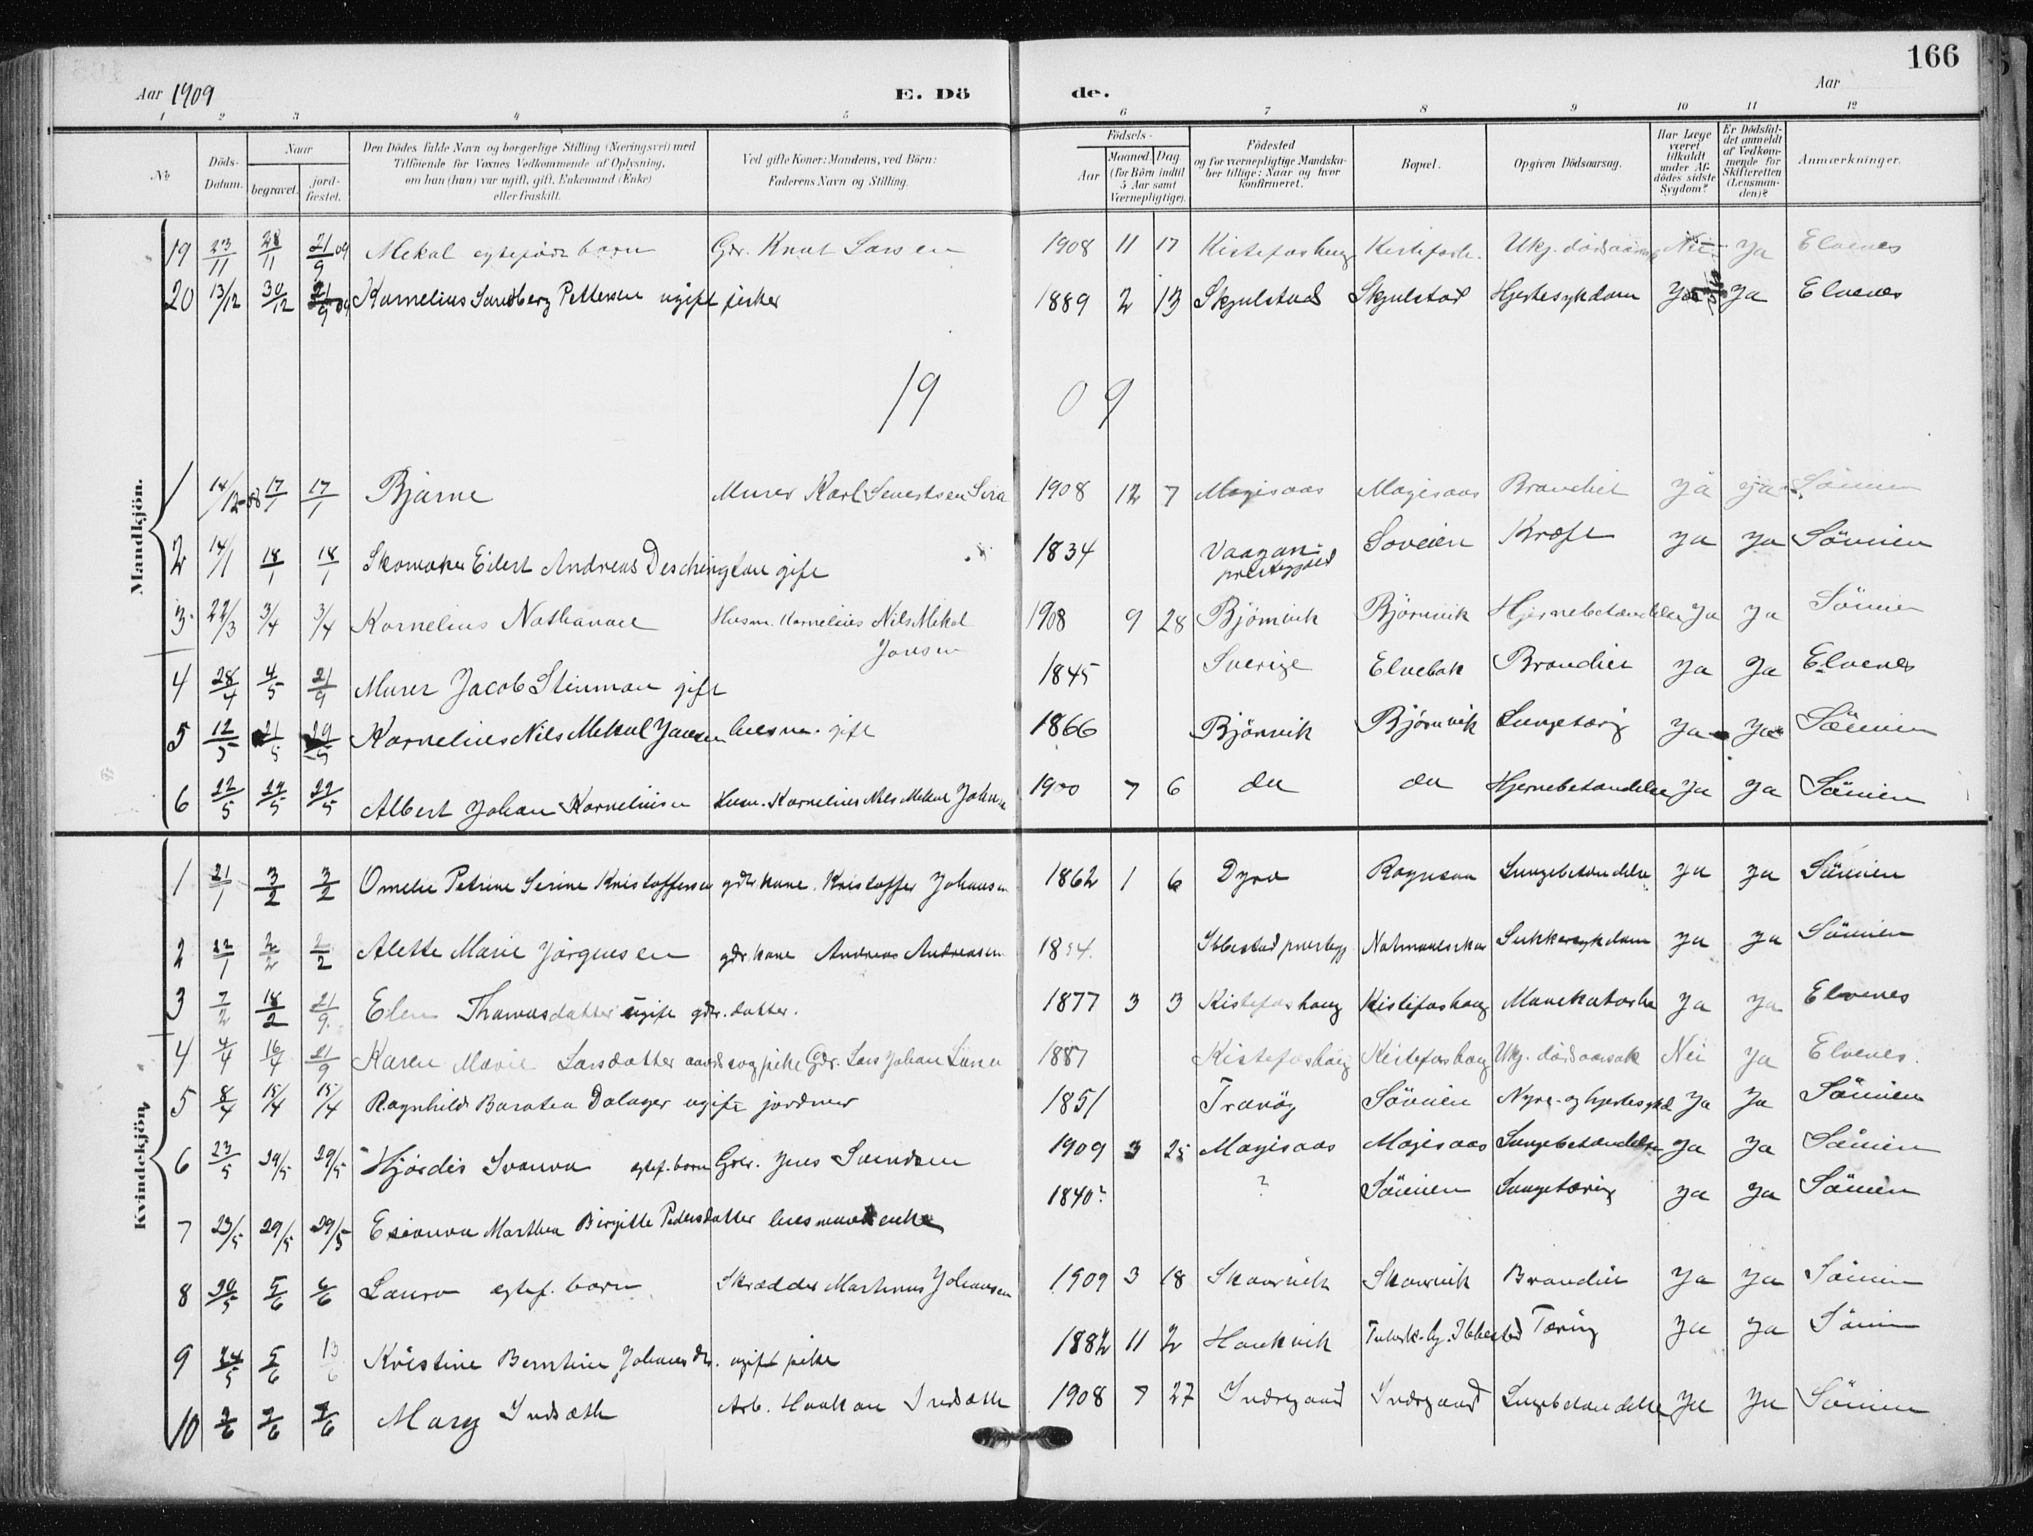 166
Aar 1909 E. Dö de. Aar
1 2 3 4 5 6 7 8 9 10 11 12
No
Döds-Datum.
Naar
begravet.
jord-fæstet.
Den Dödes fulde Navn og borgerlige Stilling (Næringsvei) med
Tilföiende for Voxnes Vedkommende af Oplysning,
om han (hun) var ugift, gift, Enkemand (Enke)
eller fraskilt.
Ved gifte Koner: Mandens, ved Börn:
Faderens Navn og Stilling.
Födsels-
Aar
Maaned. Dag
(for Börn indtil
5 Aar samt
Værnepligtige).
Födested
og for værnepligtige Mandska-
ber tillige: Naar og hvor
konfirmeret.
Bopæl.
Opgiven Dödsaarsag.
Har Læge
været
tilkaldt
under Af-
dödes sidste
Sygdom?
Er Dödsfal-
det anmeldt
af Vedkom-
mende for
Skifteretten
(Lensman-
den)?
Anmærkninger.
Mandkjön.
19 23/11 28/11 21/9 09 Mekal egtefødt barn Gdr. Knut Larsen 1908 11 17 Kistefoshaug Kistefosh. Ukj. dødsaarsag Nei ja Elvenes
20 13/12 30/12 21/9 09 Kornelius Sandberg Pettersen ugift fisker 1889 2 13 Skjulstad Skjulstad Hjertesykdom Ja Elvenes
19 09
1 14/12-08 17/1 17/1 Bjarne Murer Karl Severtsen 1908 12 7 Magisaas Magisaas Brandier ja ja Söveien
2 14/1 18/1 18/1 Skomaker Edert Andreas Deschington gift 1834 Vaagan prestegjeld Soveien Kræft ja ja Söveien
3 22/3 3/4 3/4 Kornelius Nathanael Husm. Kornelius Nils Mekal
Jansen 1908 9 28 Bjørnvik Bjørnvik Hjernebetændelse Ja ja
4 28/4 4/5 21/9 Murer Jacob Steinman gift 1845 Sverige Elvebak Brandier ja Ja Elvenes
5 12/5 21/5 Kornelius Nils Mekal Jansen husm. gift 1866 Bjørnvik Bjørnvik Lungetæring Ja Ja Söveien
6 22/5 29/5 29/5 Albert Johan Korneliusen Husm. Kornelius Nils Mekal 1900 7 6 do do Hjernebetændelse Ja Ja Söveien
Kvindekjön,
1 21/1 3/2 3/2 Omelie Petrine Serine Kristoffersen gdr. kone. Kristoffer Johansen 1862 1 6 Dyrø Lungebetændelse ja ja Söveien
2 22/1 2/2 2/2 Alette Marie Jørgensen gdr. kone Andreas Andreasen Ibbestad prestegj Sukkersykdom ja ja Söveien
3 7/2 18/2 21/9 Elen Thomasdatter ugift gdr. datter. 1877 3 3 Kistefoshaug Kistefoshaug Mavekatarh Ja ja Elvenes
4 4/4 16/4 21/9 Karen Marie Larsdatter pike Gdr. Lars Johan 1887 Kistefoshaug Kistefoshaug Ukj. dødsaarsak Nei ja Elvenes.
5 8/4 15/4 15/4 Ragnhild Dalager ugift jordmor 1851 Tranøy Söveien Nyre- og hjertesykd Ja Ja Söveien
6 23/5 29/5 29/5 Hjördis Ivanna egtef. barn Gdr. Jens Svendsen 1909 3 25 Magisaas Magisaas Lungebetændelse Ja Ja Söveien
7 23/5 29/5 29/5 Marthea Birgitte Pedersdatter husmandsenke 1840? ? Söveien Lungetæring ja ja Söveien
8 5/6 6/6 Laura egtef. barn Skrædder Martinus Johansen 1909 3 18 Skaarvik Skaarvik Brandier Ja ja Sövein
9 24/5 5/6 13/6 Kristine Berntine Johansdtr. ugift pike 1882 11 2 Ibbestad Tæring Ja Ja
10 2/6 7/6 7/6 Mary Indsæth Arb. Haakon Indsæth 1908 7 27 Indregaard Indregaard Lungebetændelse Ja Ja Sövein